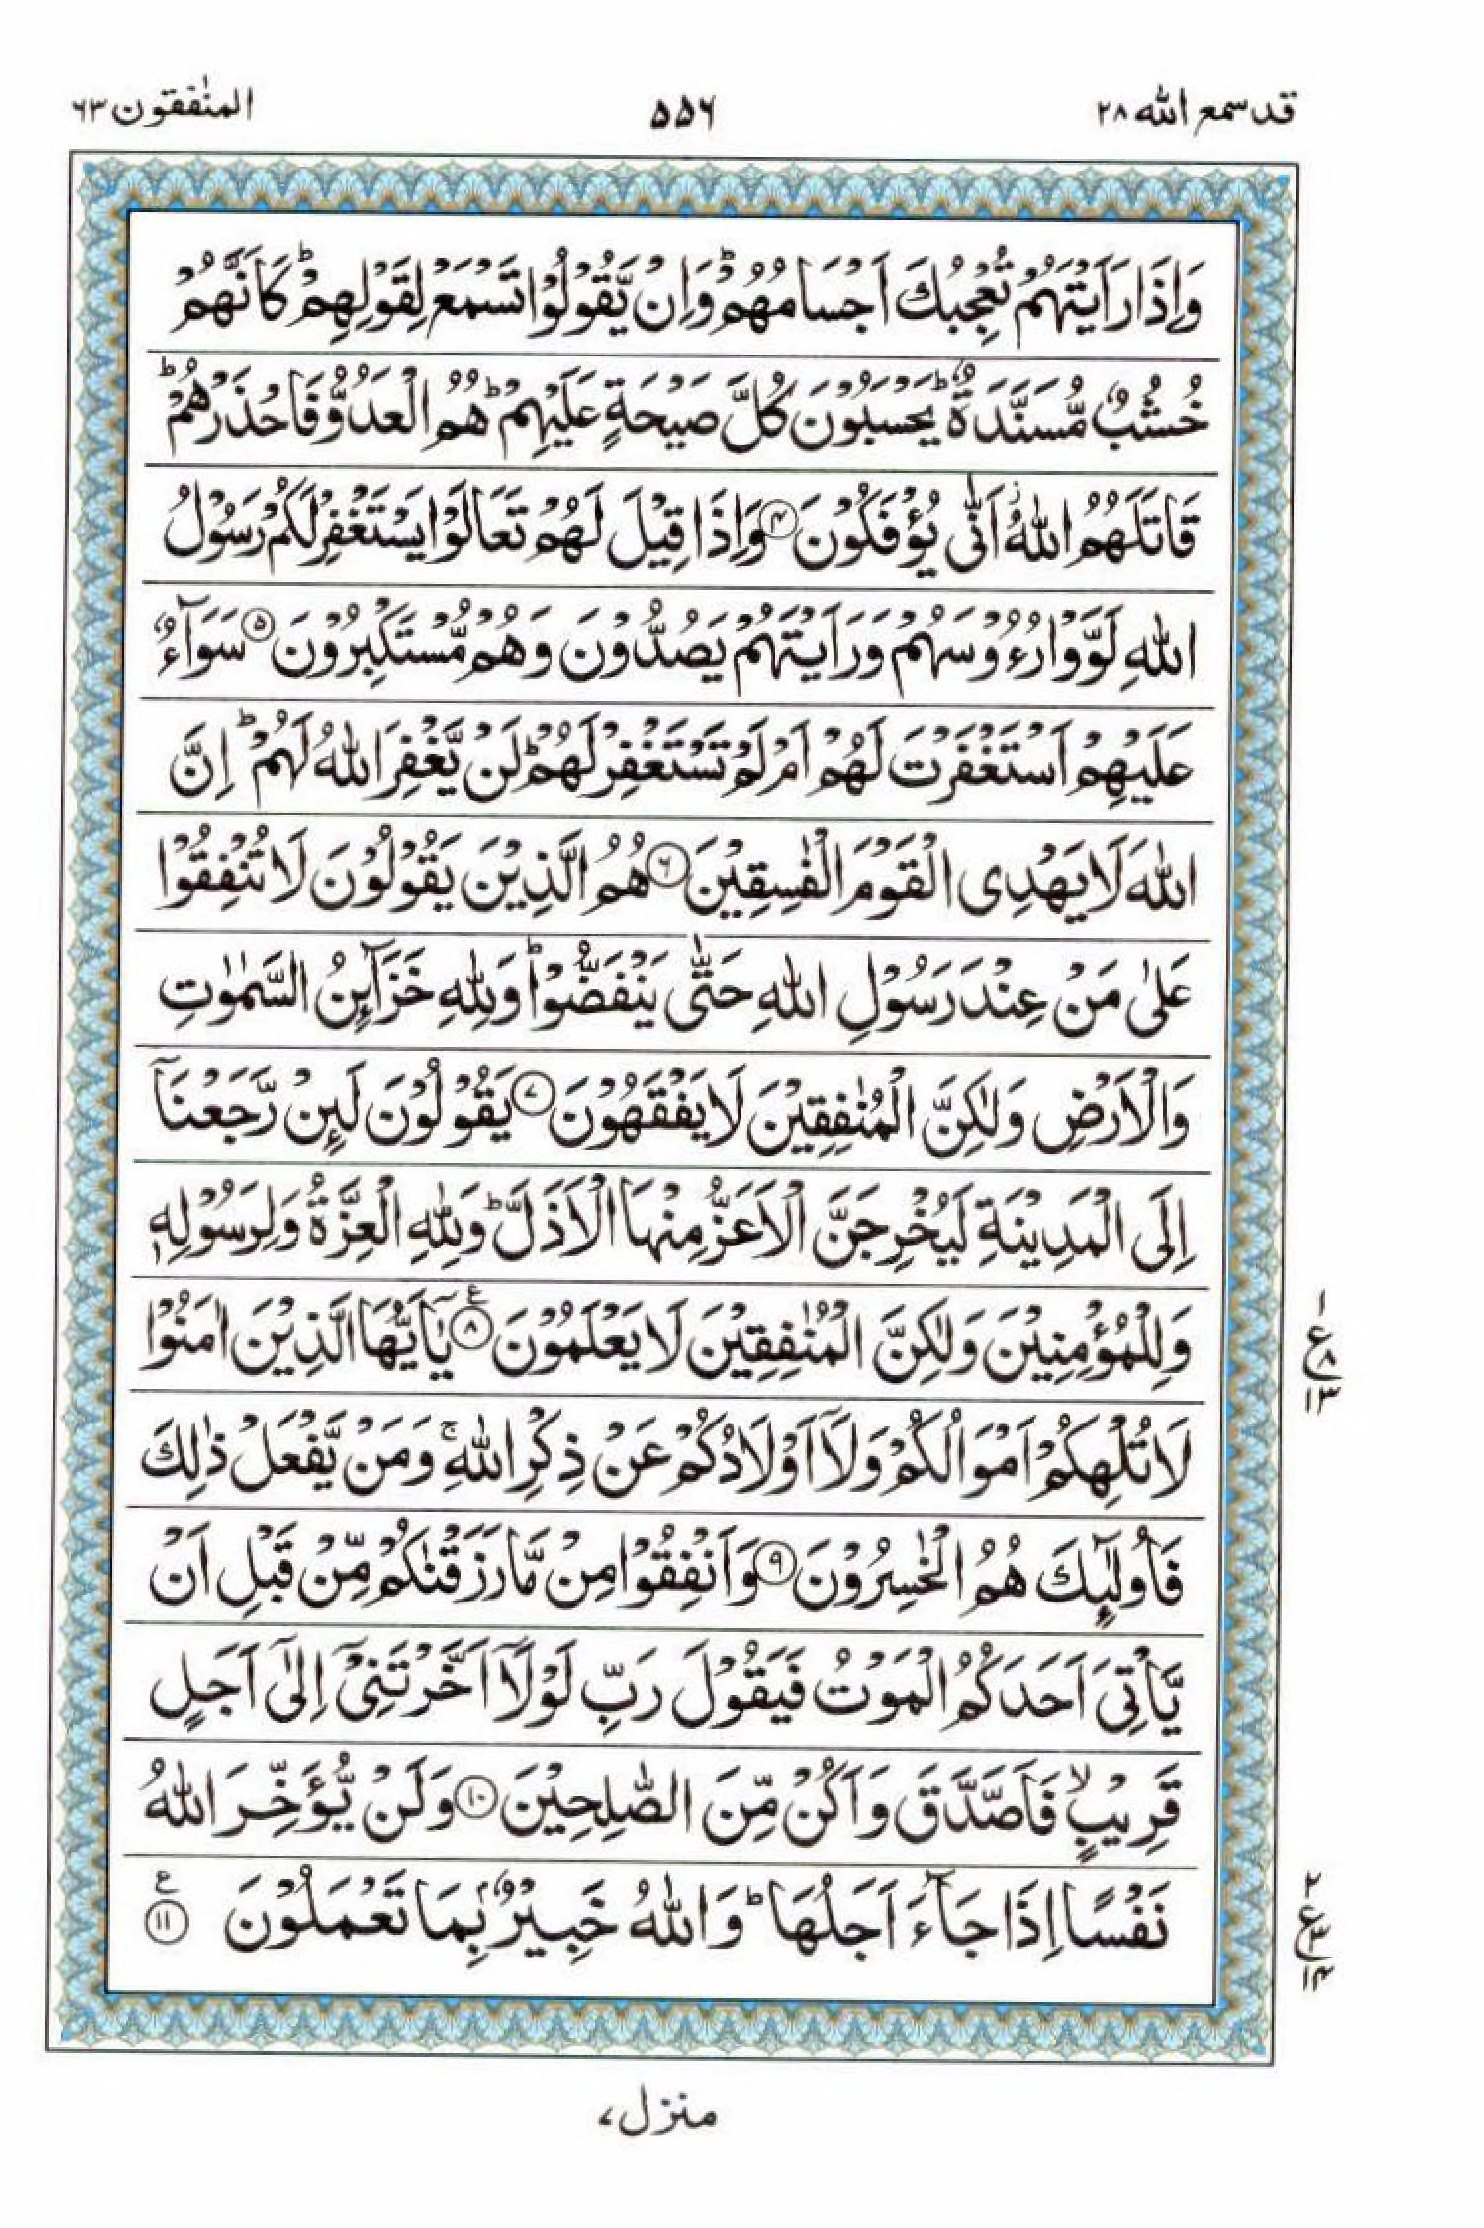 قد سمع الله ٢٨
۵۵۶
المنٰفقون ٦٣
وَاِذَا رَاَيْتَهُمْ تُعْجِبُكَ اَجْسَامُهُمْؕ وَاِنْ يَّقُوْلُوْا تَسْمَعْ لِقَوْلِهِمْؕ كَاَنَّهُمْ
خُشُبٌ مُّسَنَّدَةٌؕ يَحْسَبُوْنَ كُلَّ صَيْحَةٍ عَلَيْهِمْؕ هُمُ الْعَدُوُّ فَاحْذَرْهُمْؕ
قَاتَلَهُمُ اللّٰهُؗ اَنّٰى يُؤْفَكُوْنَ ۴ وَاِذَا قِيْلَ لَهُمْ تَعَالَوْا يَسْتَغْفِرْ لَكُمْ رَسُوْلُ
اللّٰهِ لَوَّوْا رُءُوْسَهُمْ وَرَاَيْتَهُمْ يَصُدُّوْنَ وَهُمْ مُّسْتَكْبِرُوْنَ ۵ سَوَآءٌ
عَلَيْهِمْ اَسْتَغْفَرْتَ لَهُمْ اَمْ لَمْ تَسْتَغْفِرْ لَهُمْؕ لَنْ يَّغْفِرَ اللّٰهُ لَهُمْؕ اِنَّ
اللّٰهَ لَا يَهْدِى الْقَوْمَ الْفٰسِقِيْنَ ۶ هُمُ الَّذِيْنَ يَقُوْلُوْنَ لَا تُنْفِقُوْا
عَلٰى مَنْ عِنْدَ رَسُوْلِ اللّٰهِ حَتّٰى يَنْفَضُّوْاؕ وَلِلّٰهِ خَزَآئِنُ السَّمٰوٰتِ
وَالْاَرْضِ وَلٰكِنَّ الْمُنٰفِقِيْنَ لَا يَفْقَهُوْنَ ۷ يَقُوْلُوْنَ لَئِنْ رَّجَعْنَاۤ
اِلَى الْمَدِيْنَةِ لَيُخْرِجَنَّ الْاَعَزُّ مِنْهَا الْاَذَلَّؕ وَلِلّٰهِ الْعِزَّةُ وَلِرَسُوْلِهٖ
وَلِلْمُؤْمِنِيْنَ وَلٰكِنَّ الْمُنٰفِقِيْنَ لَا يَعْلَمُوْنَ ۸ ع يٰۤاَيُّهَا الَّذِيْنَ اٰمَنُوْا
لَا تُلْهِكُمْ اَمْوَالُكُمْ وَلَاۤ اَوْلَادُكُمْ عَنْ ذِكْرِ اللّٰهِۚ وَمَنْ يَّفْعَلْ ذٰلِكَ
فَاُولٰٓئِكَ هُمُ الْخٰسِرُوْنَ ۹ وَاَنْفِقُوْا مِنْ مَّا رَزَقْنٰكُمْ مِّنْ قَبْلِ اَنْ
يَّاْتِىَ اَحَدَكُمُ الْمَوْتُ فَيَقُوْلَ رَبِّ لَوْلَاۤ اَخَّرْتَنِىْۤ اِلٰٓى اَجَلٍ
قَرِيْبٍۙ فَاَصَّدَّقَ وَاَكُنْ مِّنَ الصّٰلِحِيْنَ ۱۰ وَلَنْ يُّؤَخِّرَ اللّٰهُ
نَفْسًا اِذَا جَآءَ اَجَلُهَاؕ وَاللّٰهُ خَبِيْرٌۢ بِمَا تَعْمَلُوْنَ ۱۱ ع
۱
ع
۸
۱۳
۲
ع
۳
۱۴
منزل ۷